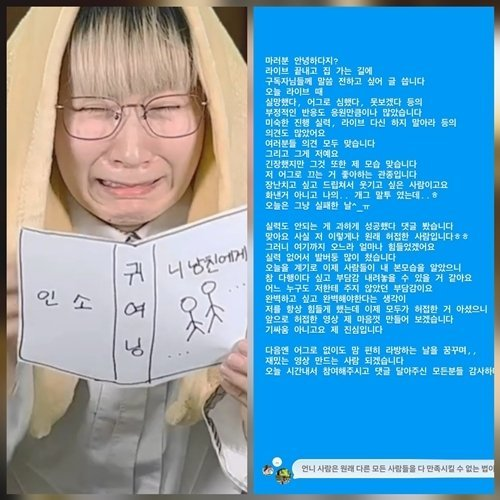 인소
귀여닝
니 남친에게
...
...
마러분 안녕하다지?
라이브 끝내고 집 가는 길에
구독자님들께 말씀 전하고 싶어 글 씁니다
오늘 라이브 때
실망했다, 어그로 심했다, 못보겠다 등의
부정적인 반응도 응원만큼이나 많았습니다
미숙한 진행 실력, 라이브 다신 하지 말아라 등의
의견도 많았어요
여러분들 의견 모두 맞습니다
그리고 그게 저예요
긴장했지만 그것 또한 제 모습 맞습니다
저 어그로 끄는 거 좋아하는 관종입니다
장난치고 싶고 드립쳐서 웃기고 싶은 사람이고요
화낸거 아니고 나의.. 개그 말투 였는데..ㅎ
오늘은 그냥 실패한 날^_ㅠ
실력도 안되는 게 과하게 성공했다 댓글 봤습니다
맞아요 사실 저 이렇게나 원래 허접한 사람입니다ㅎㅎ
그러니 여기까지 오느라 얼마나 힘들었겠어요
실력 없어서 발버둥 많이 쳤습니다
오늘을 계기로 이제 사람들이 내 본모습을 알았으니
참 다행이다 싶고 부담감 내려놓을 수 있을 거 같아요
어느 누구도 저한테 주지 않았던 부담감이요
완벽하고 싶고 완벽해야한다는 생각이
저를 항상 힘들게 했는데 이제 모두가 허접한 거 아셨으니
앞으로 허접한 영상 제 마음껏 만들어 보겠습니다
기싸움 아니고요 제 진심입니다
다음엔 어그로 없이도 맘 편히 라방하는 날을 꿈꾸며,,
재밌는 영상 만드는 사람 되겠습니다
오늘 시간내서 참여해주시고 댓글 달아주신 모든분들 감사하
언니 사람은 원래 다른 모든 사람들을 다 만족시킬 수 없는 법이